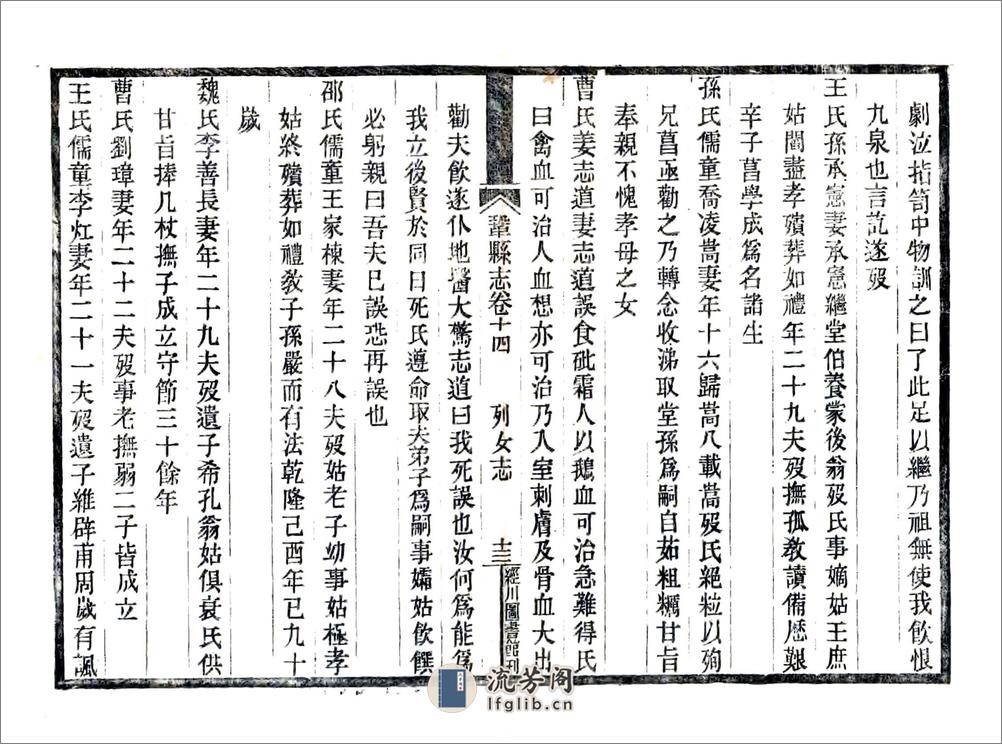 劇泣指笥中物訓之曰了此足以繼乃祖無使我飲恨
九泉也言訖遂歿
王氏孫承憲妻承憲繼堂伯養蒙後翁歿氏事嫡姑王庶
姑閻盡孝殯葬如禮年二十九夫歿撫孤敎讀備歷艱
辛子菖學成爲名諸生
孫氏儒童喬凌嵩妻年十六歸嵩八載嵩歿氏絕粒以殉
兄菖亟勸之乃轉念收涕取堂孫爲嗣自茹粗糲甘旨
奉親不愧孝母之女
曹氏姜志道妻志道誤食砒霜人以鵝血可治急難得氏
曰禽血可治人血想亦可治乃入室刺膚及骨血大出
鞏縣志卷十四 列女志 十三 經川圖書館刊
勸夫飲遂仆地醫大驚志道曰我死誤也汝何爲能爲
我立後賢於同日死氏遵命取夫弟子爲嗣事孀姑飲饌
必躬親曰吾夫已誤恐再誤也
邵氏儒童王家棟妻年二十八夫歿姑老子幼事姑極孝
姑終殯葬如禮敎子孫嚴而有法乾隆己酉年已九十
歲
魏氏李善長妻年二十九夫歿遺子希孔翁姑俱衰氏供
甘旨捧几杖撫子成立守節三十餘年
曹氏劉璋妻年二十二夫歿事老撫弱二子皆成立
王氏儒童李灴妻年二十一夫歿遺子維辟甫周歲有諷
流芳阁
lfglib.cn